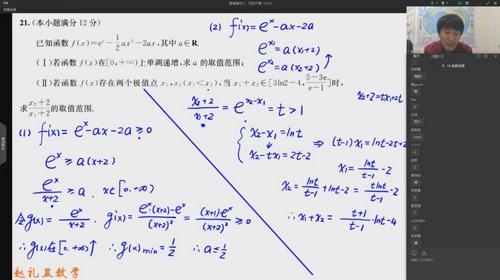 21. (本小题满分 12 分)
已知函数 f(x)=eˣ-1/2ax²-2ax,其中 a∈R.
(Ⅰ)若函数 f(x)在[0,+∞)上单调递增,求 a 的取值范围;
(Ⅱ)若函数 f(x)存在两个极值点 x₁,x₂(x₁<x₂),当 x₁+x₂∈[3ln2-4,(5-3e)/(e-1)]时,
求(x₂+2)/(x₁+2)的取值范围.
(1) f'(x)=eˣ-ax-2a≥0
eˣ≥a(x+2)
eˣ/(x+2)≥a. x∈[0,+∞)
令g(x)=eˣ/(x+2). g'(x)=(eˣ(x+2)-eˣ)/(x+2)²=(x+1)eˣ/(x+2)²≥0
∴g(x)在[0,+∞)↑ ∴g(x)min=1/2 ∴a≤1/2
(2) f'(x)=eˣ-ax-2a
eˣ¹=a(x₁+2)
eˣ²=a(x₂+2)
(x₂+2)/(x₁+2)=eˣ²⁻ˣ¹=t>1
x₂+2=tx₁+2t
{x₂-x₁=lnt
x₂-tx₁=2t-2
⇒(t-1)x₁=lnt-2t+2
x₁=lnt/(t-1)-2
x₂=lnt/(t-1)+lnt-2=tlnt/(t-1)-2
∴x₁+x₂=(t+1)/(t-1)·lnt-4
赵礼显数学